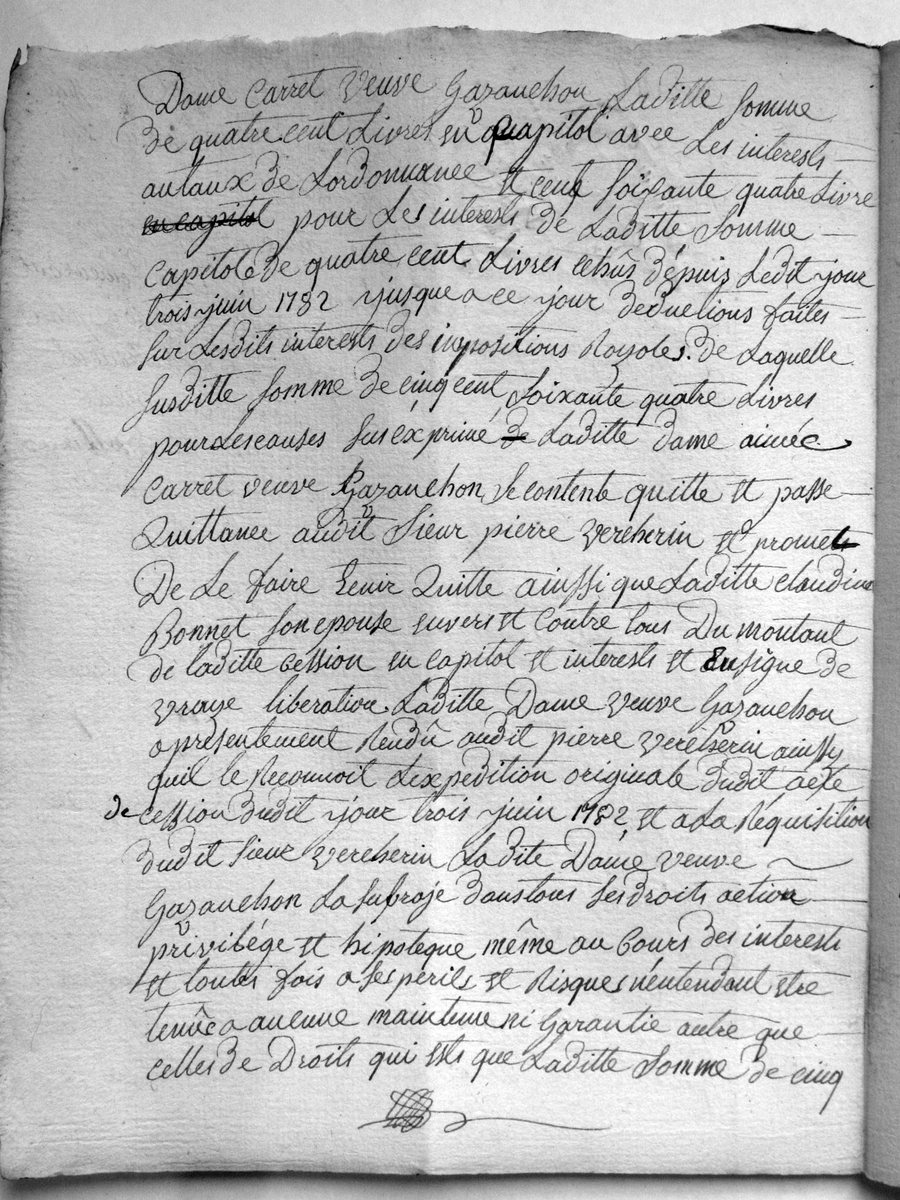 Dame Carret veuve Gazanchon Laditte somme
de quatre cent Livres en capitol avec Les interests
au taux de Lordonnance et cent soixante quatre Livre
en capitol pour Les interests de Laditte somme
capitole de quatre cent Livres echûs dépuis Ledit jour
trois juin 1782 jusque a ce jour deductions faites
sur Lesdits interests des impositions Royales. de Laquelle
susditte somme de cinq cent soixante quatre Livres
pour Les causes sus éxprimé de Laditte dame aimée
Carret veuve Gazanchon, se contente quitte et passe
Quittance audit sieur pierre vercherin et promet
De Le faire tenir Quitte ainssi que Laditte claudine
Bonnet son epouse envers et contre tous Du montant
de laditte cession en capitol et interests et En signe de
vraye liberation Laditte Dame veuve Gazanchon
a présentement Rendû audit pierre vercherin ainssy
quil le Reconnoit Lexpedition originale dudit acte
de cession dudit jour trois juin 1782 et a La Réquisition
dudit sieur vercherin La dite Dame veuve
Gazanchon La subroje dans tous ses droits action
privilége et hipoteque même au cours des interests
et toutes fois a ses perils et Risques n'entendant etre
tenûe a aucune maintenue ni Garantie autre que
celles de Droits qui ests que Laditte somme de cinq